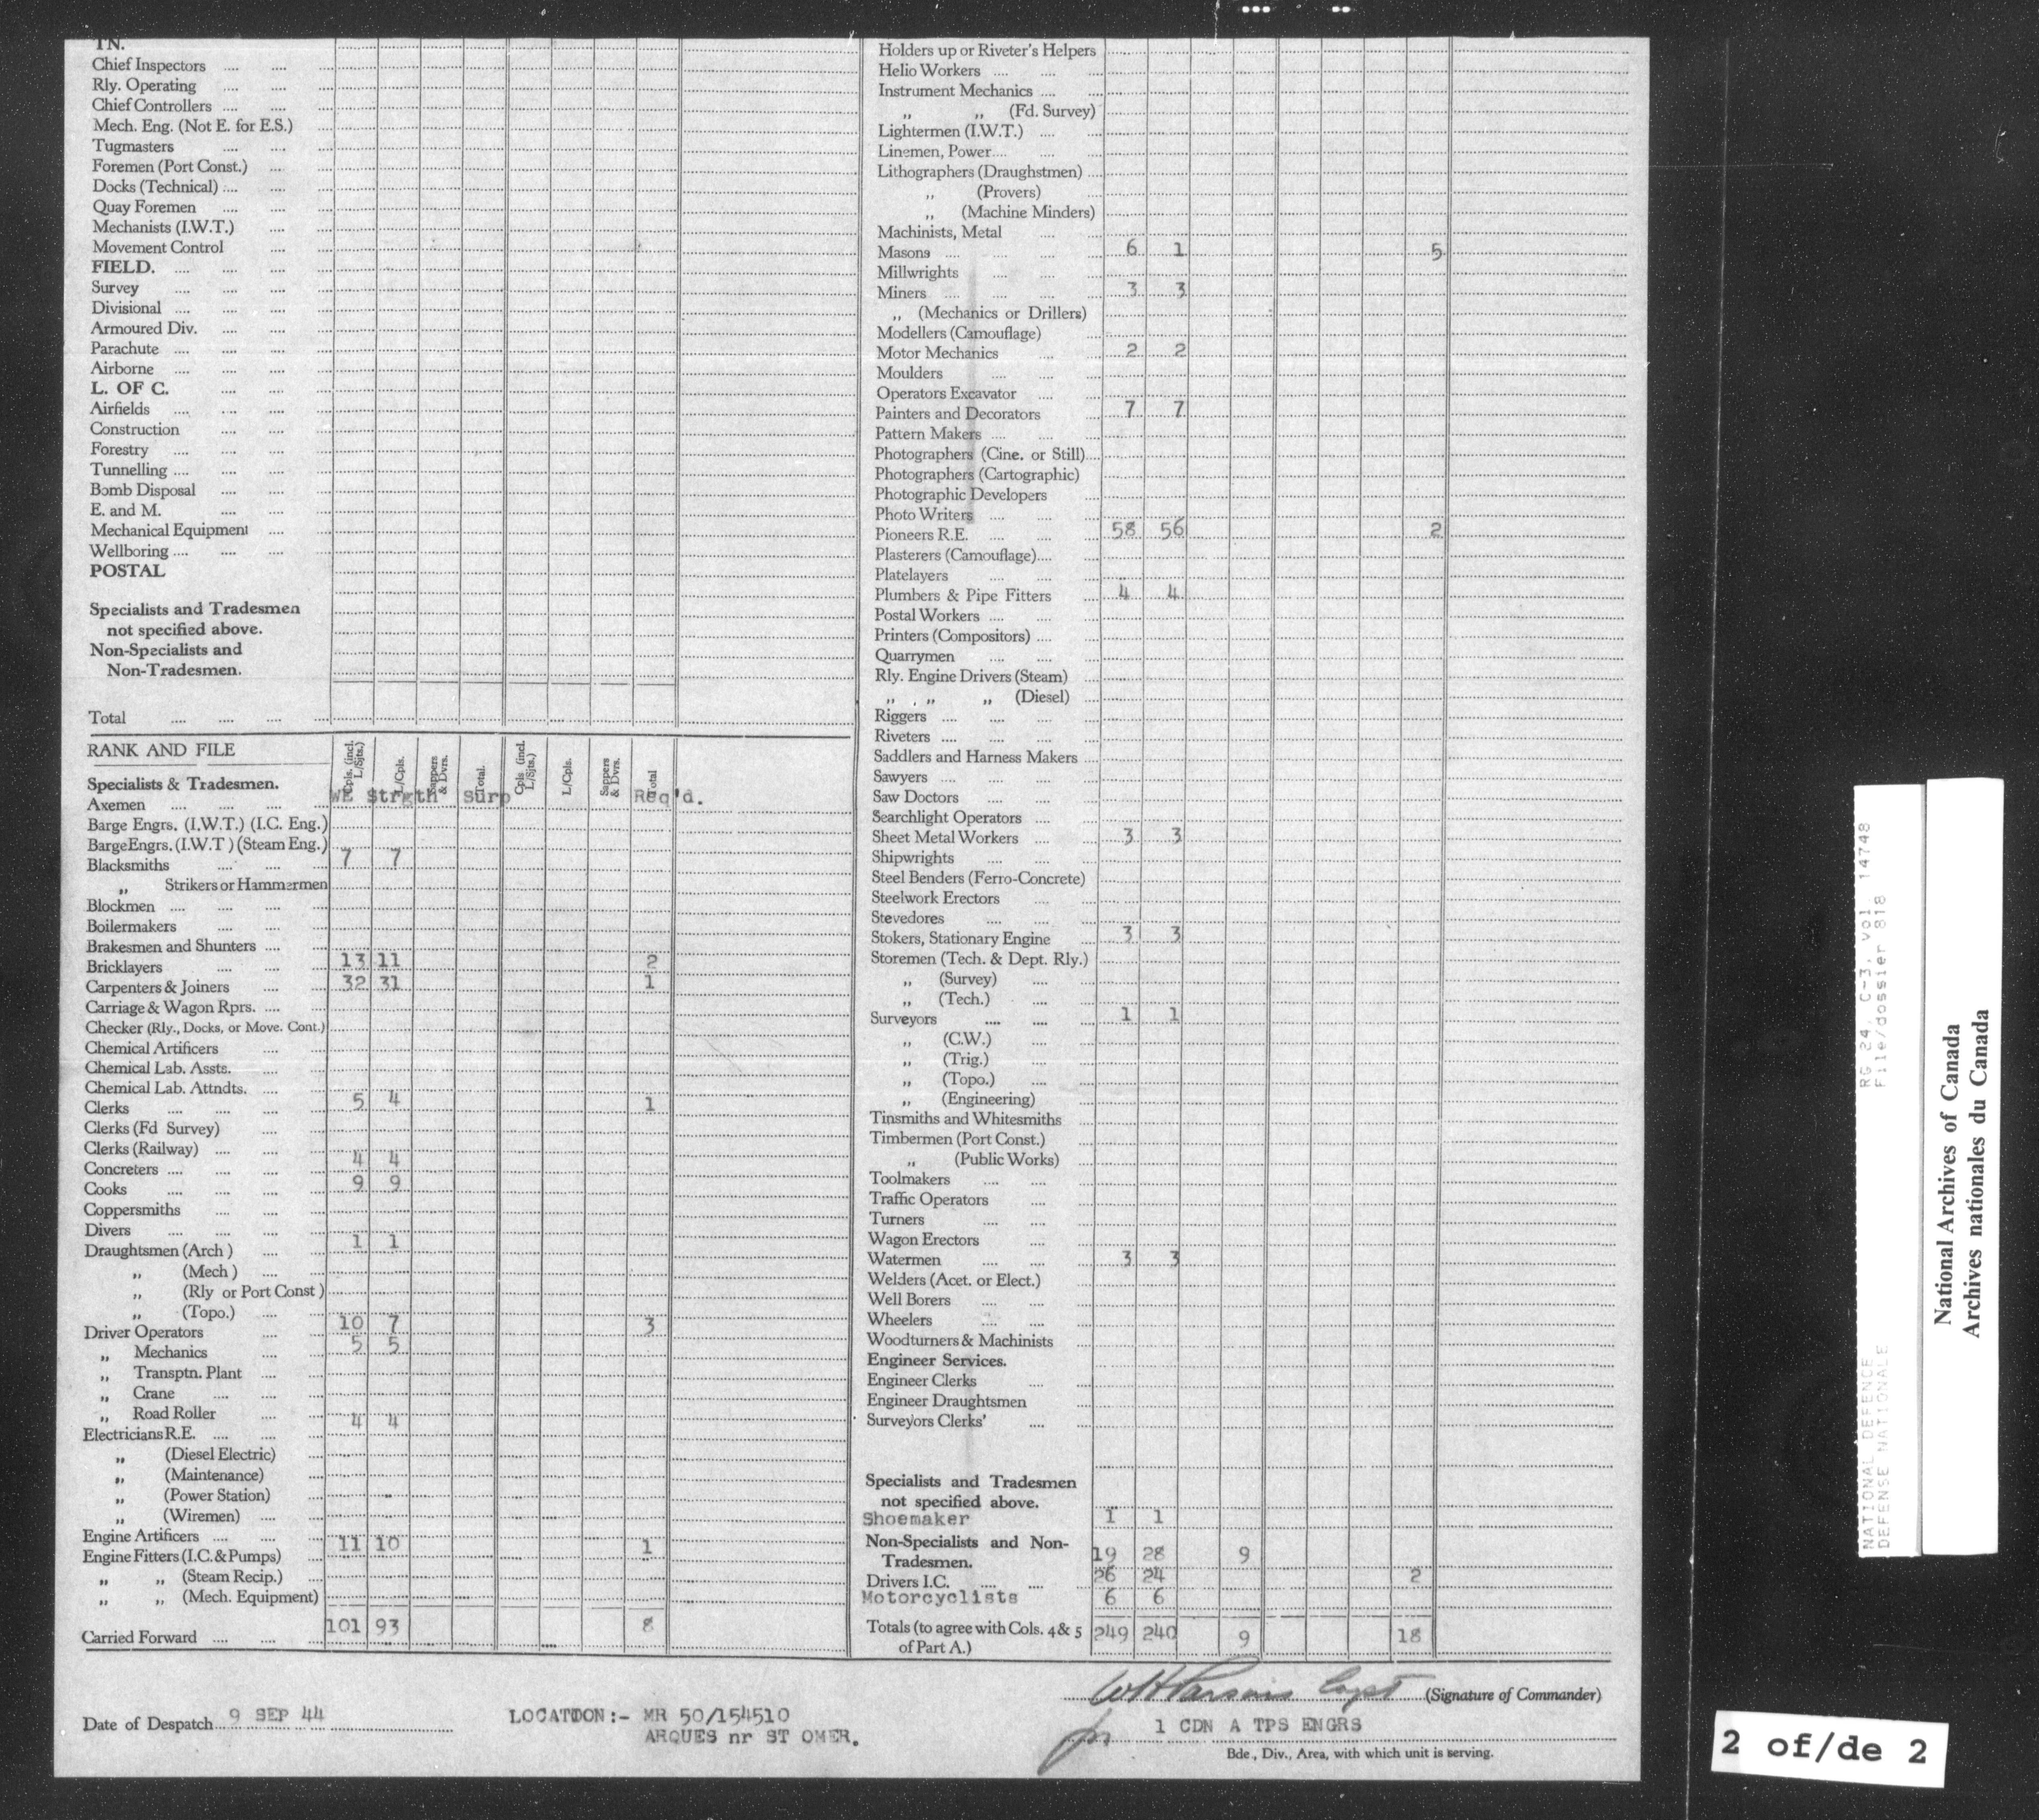 TN.
Chief Inspectors .... ....
Rly. Operating .... ....
Chief Controllers .... ....
Mech. Eng. (Not E. for E.S.)
Tugmasters .... ....
Foremen (Port Const.) ....
Docks (Technical) .... ....
Quay Foremen .... ....
Mechanists (I.W.T.) ....
Movement Control ....
FIELD. .... .... ....
Survey .... .... ....
Divisional .... .... ....
Armoured Div. .... ....
Parachute .... .... ....
Airborne .... .... ....
L. OF C. .... ....
Airfields .... .... ....
Construction .... ....
Forestry .... .... ....
Tunnelling .... .... ....
Bomb Disposal .... ....
E. and M. .... ....
Mechanical Equipment ....
Wellboring .... .... ....
POSTAL
Specialists and Tradesmen
not specified above.
Non-Specialists and
Non-Tradesmen.
Total .... .... .... ....
RANK AND FILE Cpls. (incl. L/Sjts.) L/Cpls. Sappers & Dvrs. Total. Cpls (incl. L/Sjts.) L/Cpls. Sappers & Dvrs. Total
Specialists & Tradesmen.
WE Strgth Surp Req'd.
Axemen .... .... ....
Barge Engrs. (I.W.T.) (I.C. Eng.)
BargeEngrs. (I.W.T) (Steam Eng.)
Blacksmiths .... .... 7 7
„ Strikers or Hammermen
Blockmen .... .... ....
Boilermakers .... ....
Brakesmen and Shunters ....
Bricklayers .... .... 13 11 2
Carpenters & Joiners .... 32 31 1
Carriage & Wagon Rprs. ....
Checker (Rly., Docks, or Move. Cont.)
Chemical Artificers ....
Chemical Lab. Assts. ....
Chemical Lab. Attndts. ....
Clerks .... .... .... 5 4 1
Clerks (Fd Survey) ....
Clerks (Railway) .... ....
Concreters .... .... .... 4 4
Cooks .... .... .... 9 9
Coppersmiths .... ....
Divers .... .... ....
Draughtsmen (Arch ) .... 1 1
„ (Mech ) .... ....
„ (Rly or Port Const )
„ (Topo.) ....
Driver Operators .... 10 7 3
„ Mechanics .... 5 5
„ Transptn. Plant ....
„ Crane .... ....
„ Road Roller ....
Electricians R.E. .... .... 4 4
„ (Diesel Electric)
„ (Maintenance) ....
„ (Power Station)
„ (Wiremen) ....
Engine Artificers .... ....
Engine Fitters (I.C. & Pumps) 11 10 1
„ „ (Steam Recip.)
„ „ (Mech. Equipment)
Carried Forward .... .... 101 93 8
Holders up or Riveter's Helpers
Helio Workers .... .... ....
Instrument Mechanics .... ....
„ „ (Fd. Survey)
Lightermen (I.W.T.) .... ....
Linemen, Power.... .... ....
Lithographers (Draughstmen) ....
„ (Provers)
„ (Machine Minders)
Machinists, Metal .... ....
Masons .... .... .... 6 1 5
Millwrights .... .... ....
Miners .... .... .... 3 3
„ (Mechanics or Drillers)
Modellers (Camouflage) ....
Motor Mechanics .... .... 2 2
Moulders .... .... ....
Operators Excavator ....
Painters and Decorators .... 7 7
Pattern Makers .... .... ....
Photographers (Cine. or Still)....
Photographers (Cartographic)
Photographic Developers ....
Photo Writers .... .... ....
Pioneers R.E. .... .... .... 58 56 2
Plasterers (Camouflage).... ....
Platelayers .... .... ....
Plumbers & Pipe Fitters .... 4 4
Postal Workers .... .... ....
Printers (Compositors) .... ....
Quarrymen .... .... ....
Rly. Engine Drivers (Steam) ....
„ „ „ (Diesel) ....
Riggers .... .... .... ....
Riveters .... .... .... ....
Saddlers and Harness Makers ....
Sawyers .... .... .... ....
Saw Doctors .... .... ....
Searchlight Operators .... ....
Sheet Metal Workers .... .... 3 3
Shipwrights .... .... ....
Steel Benders (Ferro-Concrete)
Steelwork Erectors .... ....
Stevedores .... .... ....
Stokers, Stationary Engine .... 3 3
Storemen (Tech. & Dept. Rly.)
„ (Survey) .... ....
„ (Tech.) .... ....
Surveyors .... .... .... 1 1
„ (C.W.) .... ....
„ (Trig.) .... ....
„ (Topo.) .... ....
„ (Engineering) ....
Tinsmiths and Whitesmiths ....
Timbermen (Port Const.) ....
„ (Public Works) ....
Toolmakers .... .... ....
Traffic Operators .... ....
Turners .... .... ....
Wagon Erectors .... ....
Watermen .... .... .... 3 3
Welders (Acet. or Elect.) ....
Well Borers .... .... ....
Wheelers .... .... ....
Woodturners & Machinists ....
Engineer Services.
Engineer Clerks .... ....
Engineer Draughtsmen ....
Surveyors Clerks' .... ....
Specialists and Tradesmen
not specified above.
Shoemaker 1 1
Non-Specialists and Non-
Tradesmen. 19 28 9
Drivers I.C. .... .... 26 24 2
Motorcyclists 6 6
Totals (to agree with Cols. 4 & 5
of Part A.) 249 240 9 18
WH Parsons Capt (Signature of Commander)
Date of Despatch 9 SEP 44
LOCATION:- MR 50/154510
ARQUES nr ST OMER.
for 1 CDN A TPS ENGRS
Bde., Div., Area, with which unit is serving.
NATIONAL DEFENCE RG 24, C-3, vol 14748
DEFENSE NATIONALE File/dossier 818
National Archives of Canada
Archives nationales du Canada
2 of/de 2